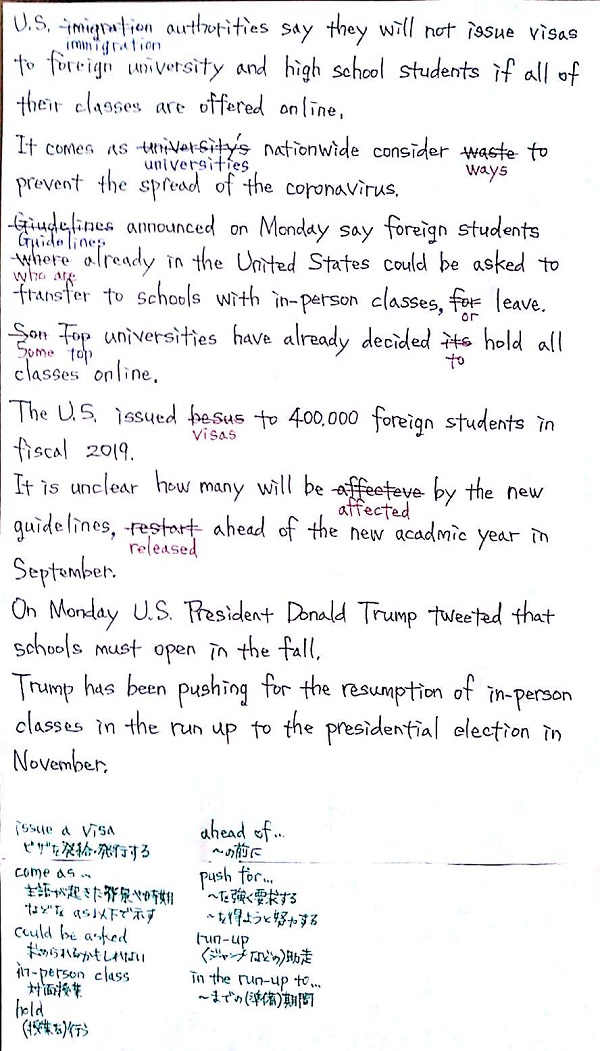 U.S. imigration authorities say they will not issue visas
immigration
to foreign university and high school students if all of
their classes are offered online.
It comes as university's nationwide consider waste to
universities ways
prevent the spread of the coronavirus.
Giudelines announced on Monday say foreign students
Guidelines
where already in the United States could be asked to
who are
transfer to schools with in-person classes, for leave.
or
Son Top universities have already decided its hold all
Some top to
classes online.
The U.S. issued besus to 400.000 foreign students in
visas
fiscal 2019.
It is unclear how many will be affecteve by the new
affected
guidelines, restart ahead of the new acadmic year in
released
September.
On Monday U.S. President Donald Trump tweeted that
schools must open in the fall.
Trump has been pushing for the resumption of in-person
classes in the run up to the presidential election in
November.
issue a visa
ビザを発給・発行する
come as...
主語が起きた背景や時期
などを as以下で示す
could be asked
求められるかもしれない
in-person class
対面授業
hold
(授業を)行う
ahead of...
〜の前に
push for...
〜を強く要求する
〜を得ようと努力する
run-up
(ジャンプなどの)助走
in the run-up to...
〜までの(準備)期間